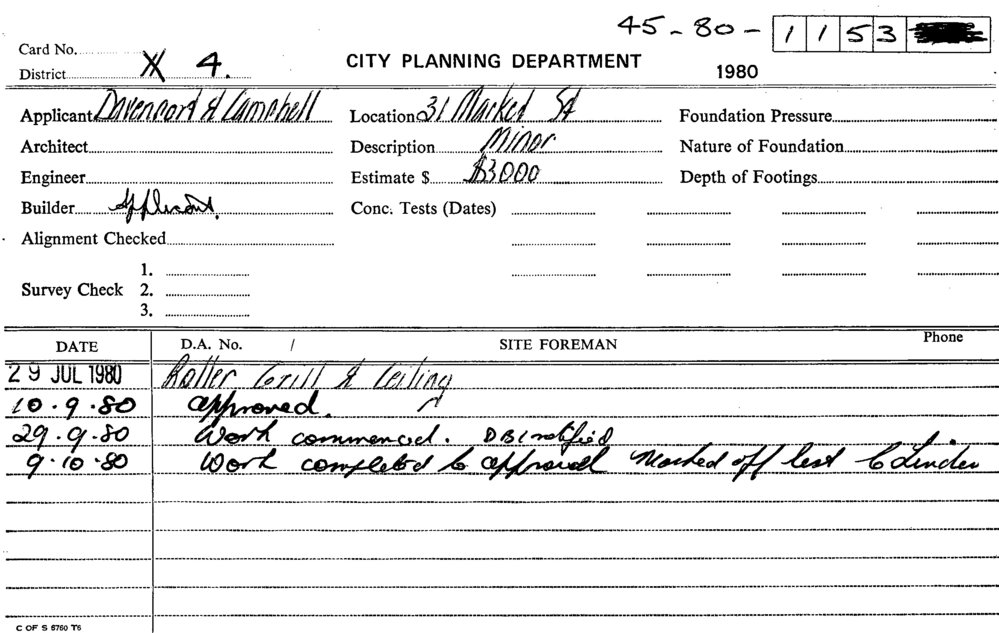 45-80-1153
Card No.
District X 4.
CITY PLANNING DEPARTMENT
1980
Applicant Davenport & Campbell Location 31 Market St Foundation Pressure
Architect Description Minor Nature of Foundation
Engineer Estimate $ $3000 Depth of Footings
Builder Applicant. Conc. Tests (Dates)
Alignment Checked
1.
Survey Check 2.
3.
DATE D.A. No. / SITE FOREMAN Phone
29 JUL 1980 Roller Grill & Ceiling
10.9.80 approved.
29.9.80 Work commenced. DBI notified
9.10.80 Work completed to approval Marked off list
C OF S 6760 T6